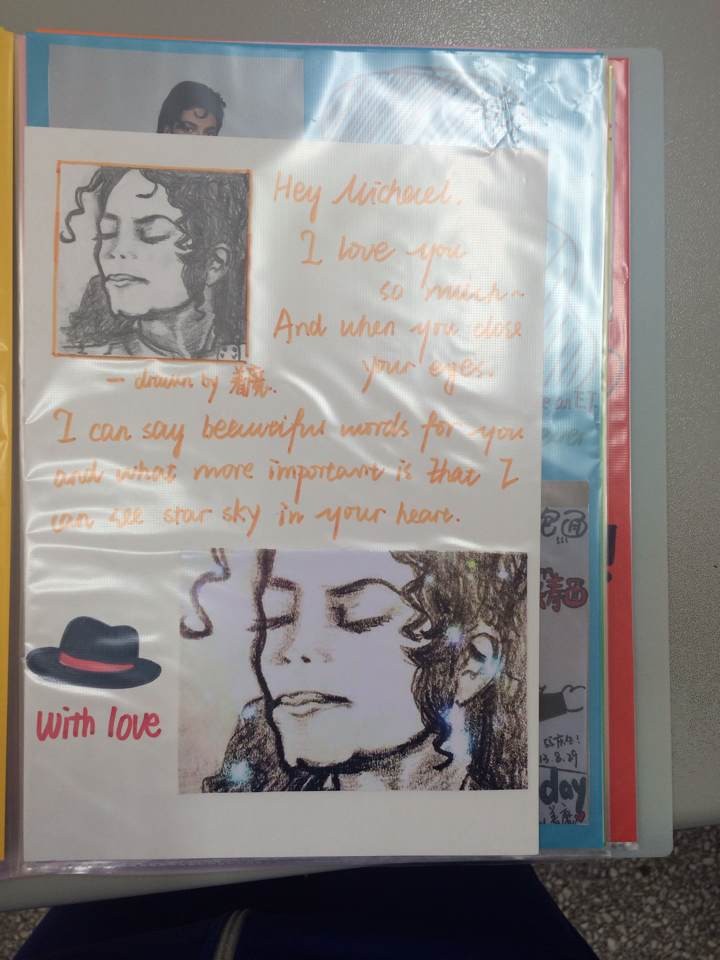 Hey Michael.
I love you
so much~
And when you close
your eyes.
— drawn by 着魔.
I can say beauuiful words for you
and what more important is that I
can see star sky in your heart.
With love
面
!!!
!
day